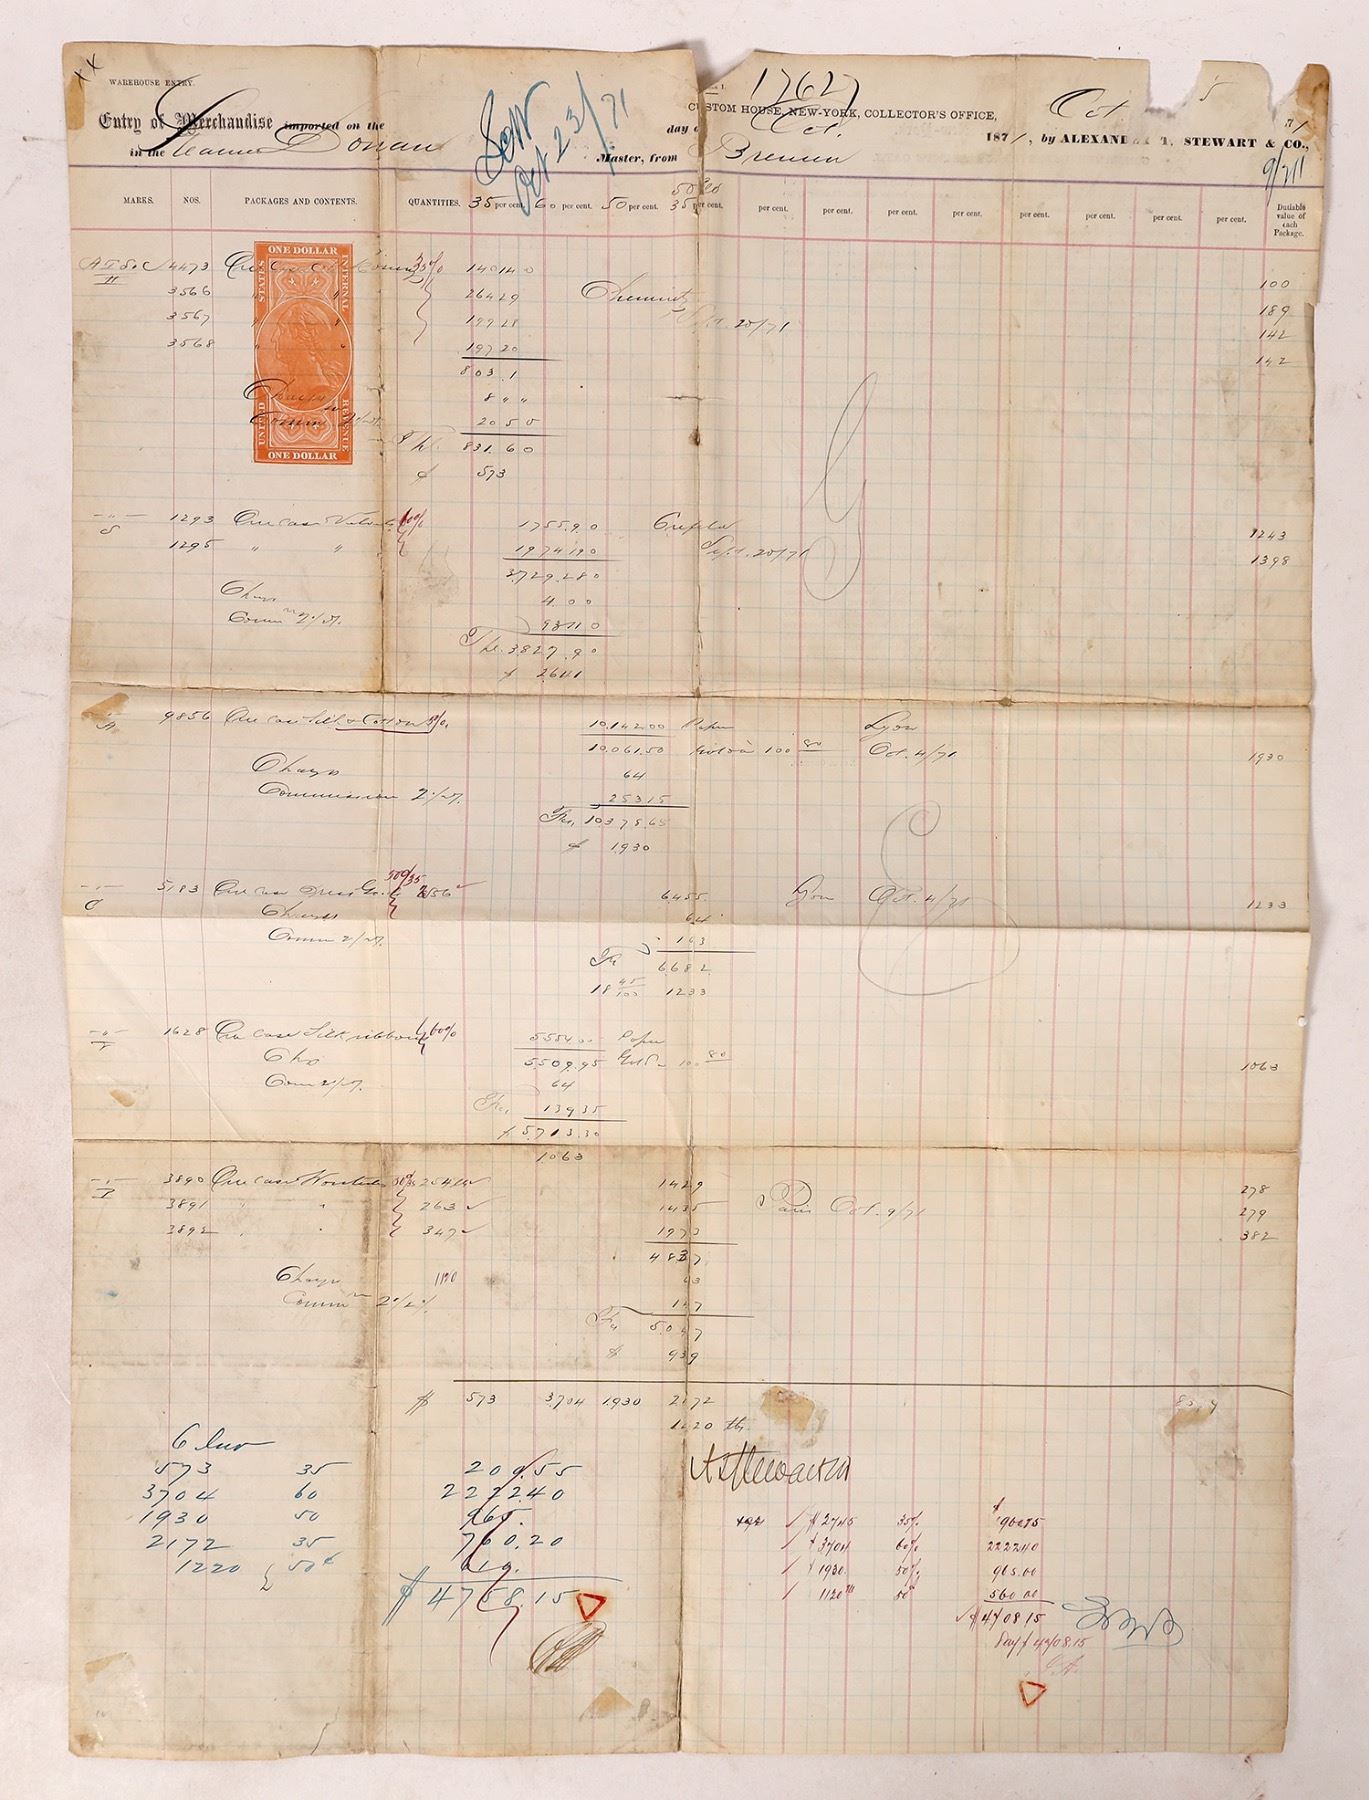 XX
WAREHOUSE ENTRY.
17627
Oct 5 71
CUSTOM HOUSE, NEW-YORK, COLLECTOR'S OFFICE,
Entry of Merchandise imported on the day of Oct. 1871, by ALEXANDER T. STEWART & CO.,
in the Steamer Donau Master, from Bremen
Oct 23/71
MARKS. NOS. PACKAGES AND CONTENTS. QUANTITIES. 35 per cent. 60 per cent. 50 per cent. 35 per cent. per cent. per cent. per cent. per cent. per cent. per cent. per cent. per cent. Dutiable value of each Package.
ONE DOLLAR
UNITED STATES
INTERNAL REVENUE
ONE DOLLAR
4473 One Case 35% 140140 100
3566 " " 26429 Chemnitz 189
3567 " " 19928 Sept. 20/71 142
3568 " " 19720 142
803.1
Charges 8 " "
Comm 2055
Thl. 831.60
$ 573
S 1293 One case Velvets 60% 1755.90 Crefeld 1243
1295 " " 1974.190 Sept. 20/71 1398
3729.280
Charges 4.00
Comm 93110
Thl. 3827.90
$ 2641
9856 One case Silk & Cotton 50% 10.142.00 Paper Lyon
10.061.50 Gold in 100 80 Oct. 4/71 1930
Charges 64
Commission 253.15
Frs. 10.378.65
$ 1930
C 5183 One case Dress Goods 50c/35 6455 Lyon Oct. 4/71 1233
Charges 64
Comm 163
Frs 6682
18 45/100 1233
1628 One case Silk ribbons 60% 5554.00 Paper
Chs 5509.95 Gold 80 1063
Comm 64
Frs. 139.35
$ 5713.30
1063
3890 One case Worsteds 254 1429 278
3891 " " 263 1435 Paris Oct. 9/71 279
3892 " " 347 1973 382
4837
Charges 1120 63
Comm 147
Frs 5047
$ 939
$ 573 3,704 1930 2172
1220 lbs.
6 Inv
573 35 200.55
3704 60 2222.40
1930 50 965.
2172 35 760.20
1220 50¢ 610.
$ 4758.15
A T Stewart & Co
$ 2745 35% $ 960.75
$ 3704 60% 2222.40
$ 1930. 50% 965.00
1120 lb 50c 560.00
$ 4708.15
Pay $ 4708.15